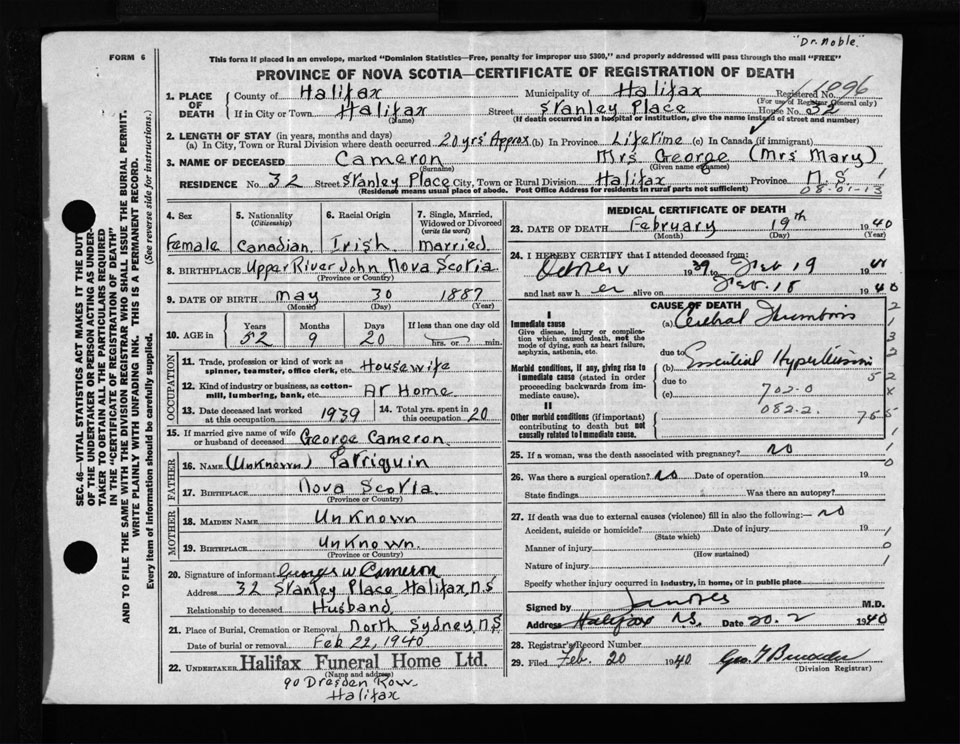 "Dr. Noble"
FORM 6
This form if placed in an envelope, marked "Dominion Statistics—Free, penalty for improper use $300," and properly addressed will pass through the mail "FREE"
PROVINCE OF NOVA SCOTIA—CERTIFICATE OF REGISTRATION OF DEATH
1. PLACE OF DEATH County of Halifax Municipality of Halifax Registered No. 1096
(For use of Registrar General only)
If in City or Town Halifax Street Stanley Place House No. 32
(Name) (If death occurred in a hospital or institution, give the name instead of street and number)
2. LENGTH OF STAY (in years, months and days)
(a) In City, Town or Rural Division where death occurred 20 yrs' Approx (b) In Province Lifetime (c) In Canada (if immigrant)
3. NAME OF DECEASED Cameron Mrs George (Mrs Mary)
(Surname) (Given name or names)
RESIDENCE No. 32 Street Stanley Place City, Town or Rural Division Halifax Province N.S.
(Residence means usual place of abode. Post Office Address for residents in rural parts not sufficient) 08-01-13
4. Sex 5. Nationality (Citizenship) 6. Racial Origin 7. Single, Married, Widowed or Divorced (write the word)
Female Canadian Irish married
8. BIRTHPLACE Upper River John Nova Scotia
(Province or Country)
9. DATE OF BIRTH May 30 1887
(Month) (Day) (Year)
10. AGE in Years Months Days If less than one day old
52 9 20 hrs. or min.
OCCUPATION
11. Trade, profession or kind of work as spinner, teamster, office clerk, etc. Housewife
12. Kind of industry or business, as cotton-mill, lumbering, bank, etc. At Home
13. Date deceased last worked at this occupation 1939 14. Total yrs. spent in this occupation 20
15. If married give name of wife or husband of deceased George Cameron
FATHER
16. NAME (Unknown) Tattriquin
17. BIRTHPLACE Nova Scotia
(Province or Country)
MOTHER
18. MAIDEN NAME Unknown
19. BIRTHPLACE Unknown
(Province or Country)
20. Signature of informant George W Cameron
Address 32 Stanley Place Halifax, N.S
Relationship to deceased Husband
21. Place of Burial, Cremation or Removal North Sydney N.S
Date of burial or removal Feb 22, 1940
22. UNDERTAKER Halifax Funeral Home Ltd.
(Name and address)
90 Dresden Row
Halifax
MEDICAL CERTIFICATE OF DEATH
23. DATE OF DEATH February 19th 1940
(Month) (Day) (Year)
24. I HEREBY CERTIFY that I attended deceased from:
October 1939 to Feb 19 19
and last saw h er alive on Feb. 18 1940
CAUSE OF DEATH
I
Immediate cause (a) Cerebral Thrombosis
Give disease, injury or complication which caused death, not the mode of dying, such as heart failure, asphyxia, asthenia, etc.
due to
Morbid conditions, if any, giving rise to immediate cause (stated in order proceeding backwards from immediate cause) (b) Essential Hypertension
due to
(c) 702.0
082.2.
II
Other morbid conditions (if important) contributing to death but not causally related to immediate cause.
25. If a woman, was the death associated with pregnancy? no
26. Was there a surgical operation? no Date of operation
State findings Was there an autopsy?
27. If death was due to external causes (violence) fill in also the following:— no
Accident, suicide or homicide? Date of injury 19
(State which)
Manner of injury
(How sustained)
Nature of injury
Specify whether injury occurred in industry, in home, or in public place
Signed by M.D.
Address Halifax N.S. Date 20.2 1940
28. Registrar's Record Number
29. Filed Feb. 20 1940
(Division Registrar)
SEC. 46—VITAL STATISTICS ACT MAKES IT THE DUTY
OF THE UNDERTAKER OR PERSON ACTING AS UNDER-
TAKER TO OBTAIN ALL THE PARTICULARS REQUIRED
IN THE "CERTIFICATE OF REGISTRATION OF DEATH"
AND TO FILE THE SAME WITH THE DIVISION REGISTRAR WHO SHALL ISSUE THE BURIAL PERMIT.
WRITE PLAINLY WITH UNFADING INK. THIS IS A PERMANENT RECORD.
Every item of information should be carefully supplied. (See reverse side for instructions.)